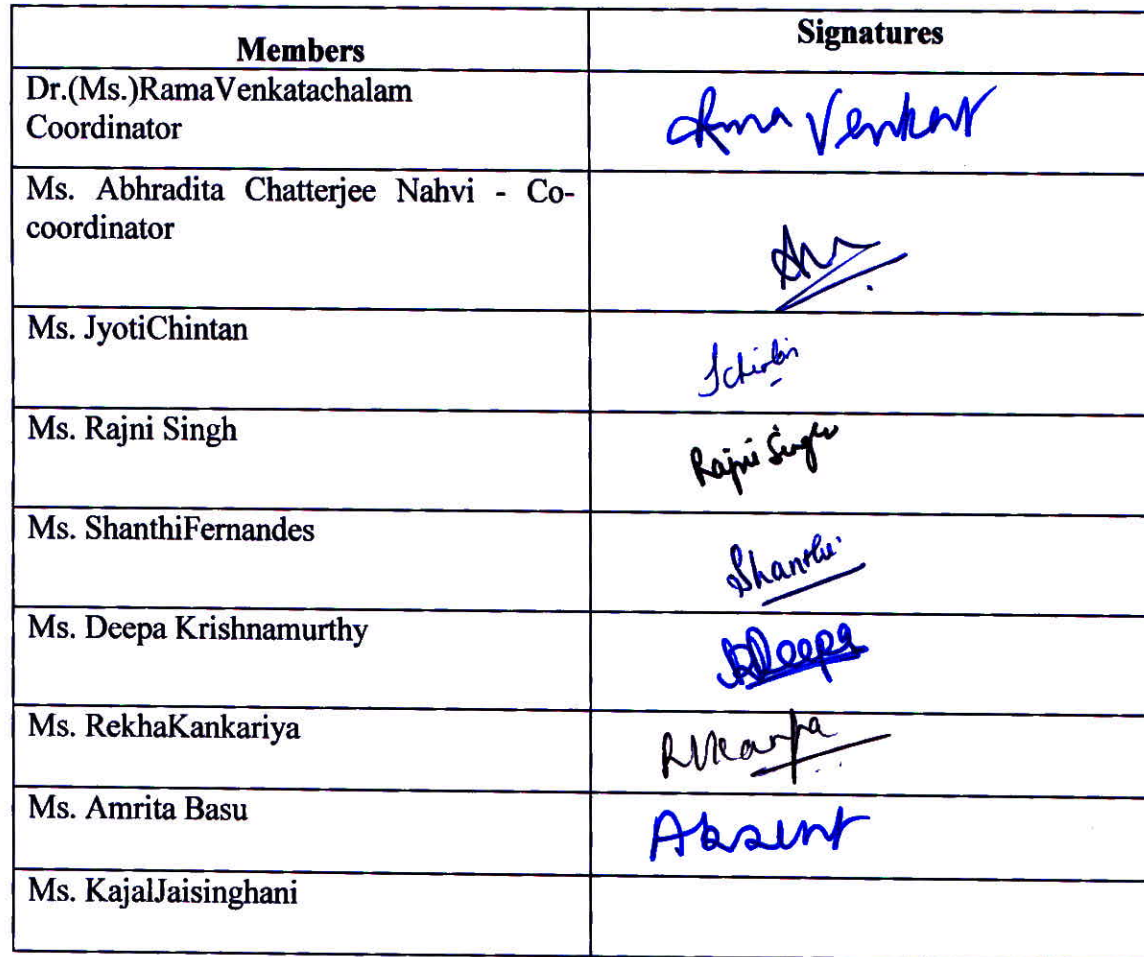 Members Signatures
Dr.(Ms.)RamaVenkatachalam
Coordinator
Rma Venkat
Ms. Abhradita Chatterjee Nahvi - Co-
coordinator
Ms. JyotiChintan
Ms. Rajni Singh
Rajni Singh
Ms. ShanthiFernandes
Shanthi
Ms. Deepa Krishnamurthy
Deepa
Ms. RekhaKankariya
Ms. Amrita Basu
Absent
Ms. KajalJaisinghani